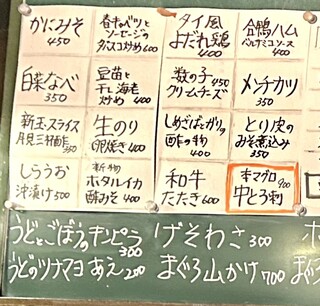 かにみそ
450
春キャベツと
ソーセージの
タバスコ炒め 600
タイ風
よだれ鶏
400
合鴨ハム
バルサミコソース
400
白菜なべ
350
豆苗と
干し海老
炒め 400
数の子 450
クリームチーズ
メンチカツ
350
新玉スライス
月見三杯酢 350
生のり
卵焼き 400
しめさばとガリの
酢の物
400
とり皮の
みそ煮込み
350
しらうお
沖漬け 500
新物
ホタルイカ
酢みそ 400
和牛
たたき 600
本マグロ 900
中とろ刺
うどとごぼうのキンピラ
300
げそわさ 300
うどのツナマヨあえ 200
まぐろ山かけ 700
まぐ